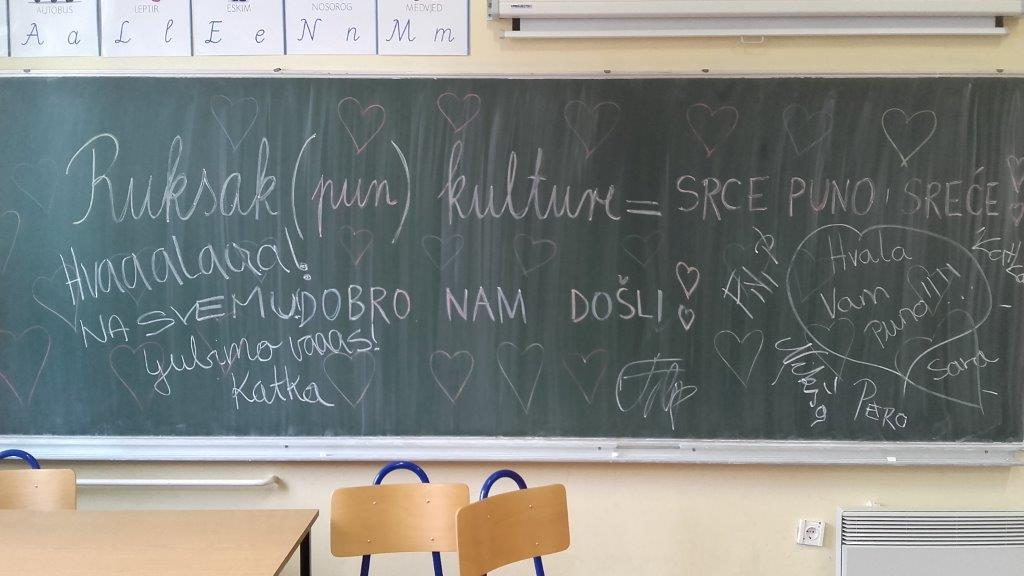 AUTOBUS LEPTIR ESKIM NOSOROG MEDVJED
A a L l E e N n M m
Ruksak (pun) kulture = SRCE PUNO SREĆE
Hvaaalaaaa!
NA SVEMU!
DOBRO NAM DOŠLI!
Ljubimo vaaas!
Katka
Filip
ANĐ
Hvala
Vam
Puno!!!!
Sara
PERO